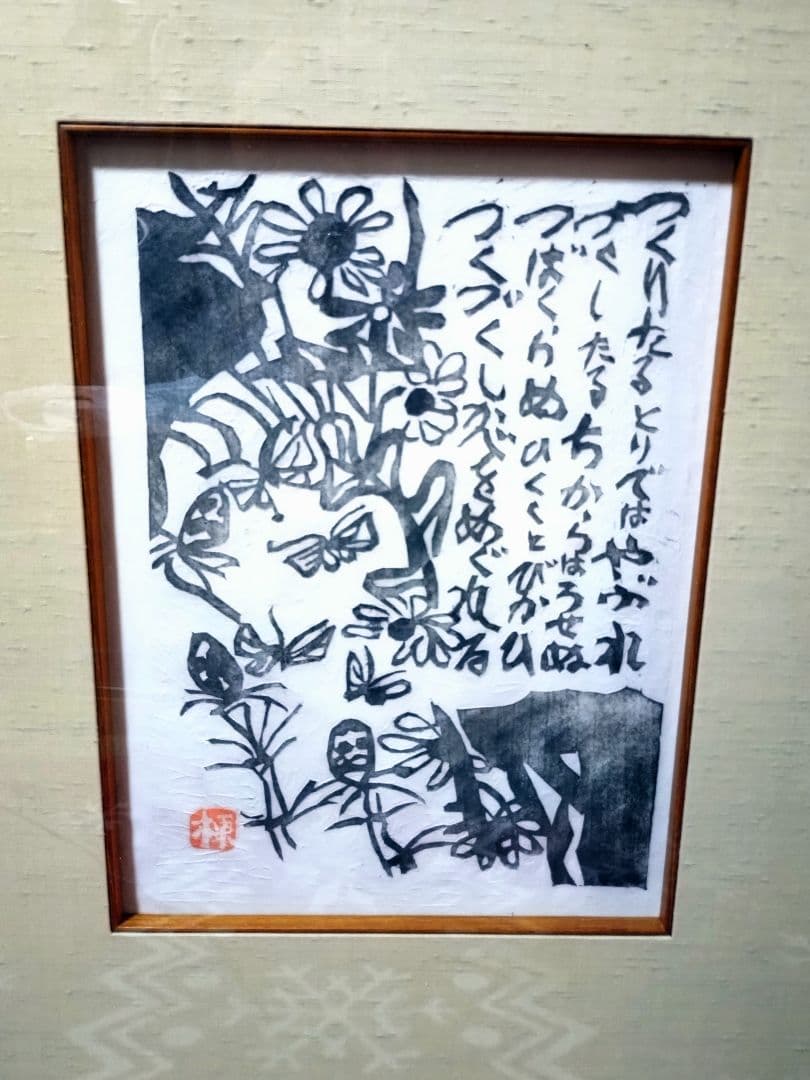 つくりたるとりではやぶれ
づくしたるちからはうせぬ
つばくらめひくくとびかひ
つくづくし灰をめぐれる
棟